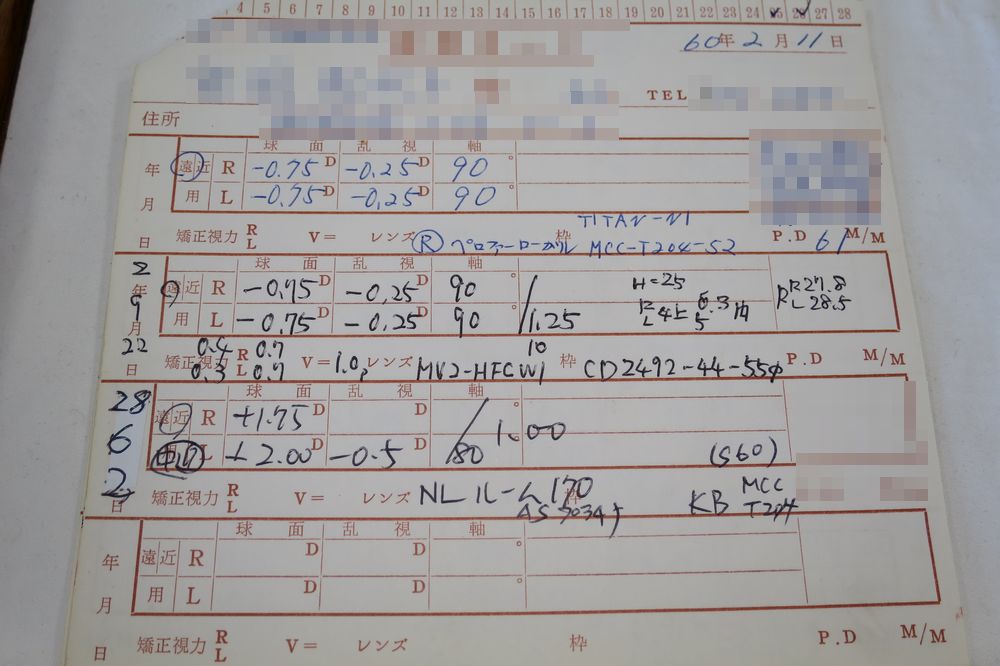 4 5 6 7 8 9 10 11 12 13 14 15 16 17 18 19 20 21 22 23 24 25 26 27 28
60年2月11日
TEL
住所
球面 乱視 軸
年 遠近 R -0.75 D -0.25 D 90 °
月 用 L -0.75 D -0.25 D 90
TITAN-NI
日 矯正視力 R L V= レンズ R 枠 MCC-T204-52 P.D 61 M/M
球面 乱視 軸
2年 遠近 R -0.75 D -0.25 D 90 ° H=25 R 27.8
9月 用 L -0.75 D -0.25 D 90 1.25 L 28.5
22日 矯正視力 0.4 R 0.7 10
0.3 L 0.7 V=1.0 レンズ MV2-HFCW1 枠 CD2492-44-55 P.D M/M
球面 乱視 軸
28 遠近 R +1.75 D D ° 1.00
6 L +2.00 D -0.5 D 80 (S60)
2日 矯正視力 R L V= レンズ NLルーム170 枠 KB MCC
T204
球面 乱視 軸
年 遠近 R D D °
月 用 L D D
日 矯正視力 R L V= レンズ 枠 P.D M/M